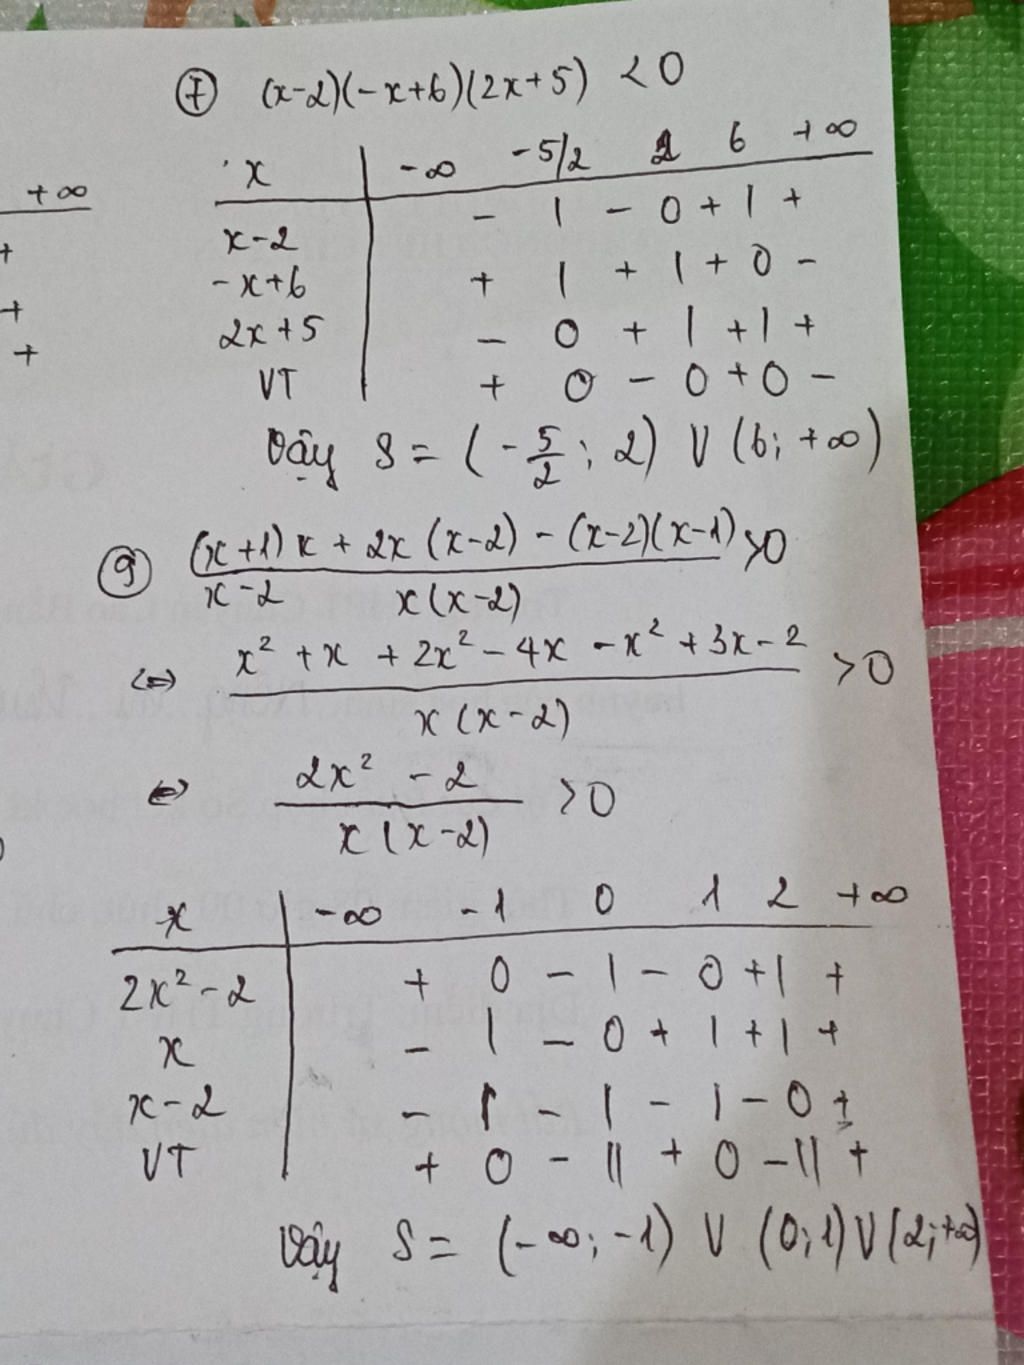 +∞
+
+
+
⑦ (x-2)(-x+6)(2x+5) < 0
x | -∞ -5/2 2 6 +∞
x-2 | - | - 0 + | +
-x+6 | + | + | + 0 -
2x+5 | - 0 + | + | +
VT | + 0 - 0 + 0 -
Vậy S = (-5/2; 2) ∪ (6; +∞)
⑨ (x+1)x + 2x(x-2) - (x-2)(x-1) > 0
x-2 x(x-2)
⇔ x² + x + 2x² - 4x - x² + 3x - 2 > 0
x(x-2)
⇔ 2x² - 2 > 0
x(x-2)
x | -∞ -1 0 1 2 +∞
2x²-2 | + 0 - | - 0 + | +
x | - | - 0 + | + | +
x-2 | - | - | - | - 0 +
VT | + 0 - || + 0 - || +
Vậy S = (-∞; -1) ∪ (0; 1) ∪ (2; +∞)